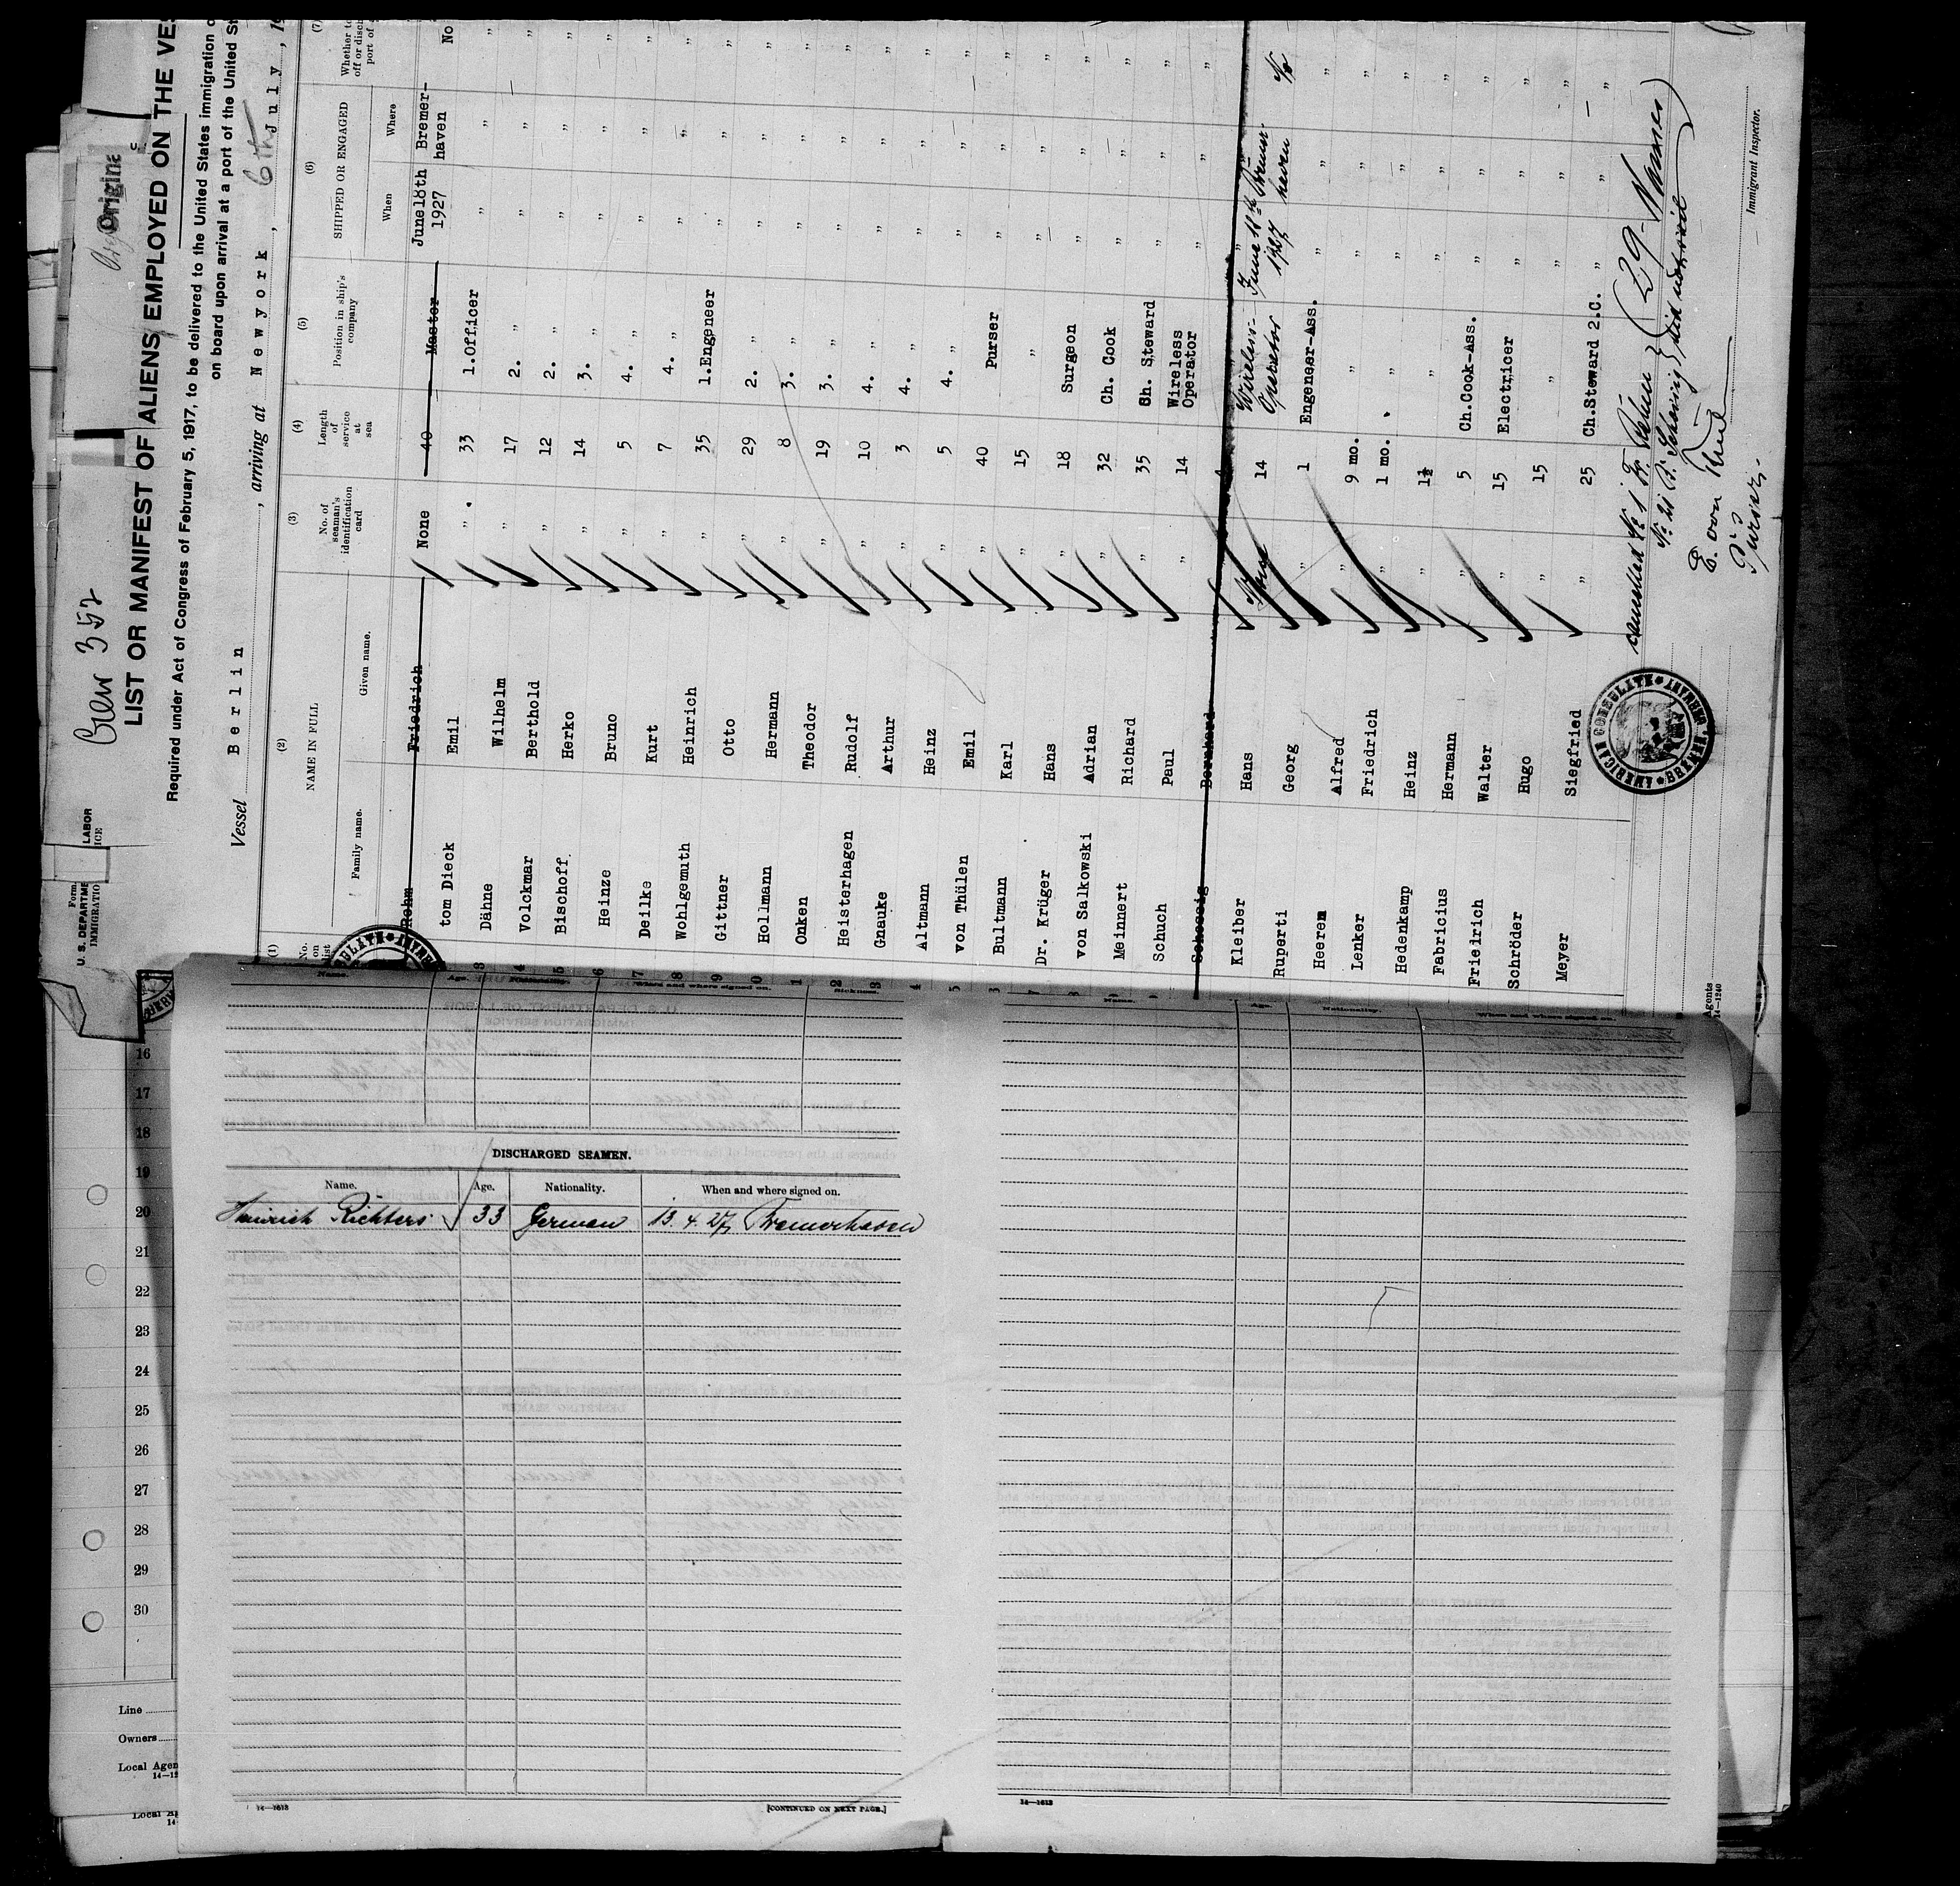 Crew 352
Origina
Form
U. S. DEPARTME LABOR
IMMIGRATIO ICE
LIST OR MANIFEST OF ALIENS EMPLOYED ON THE VES
Required under Act of Congress of February 5, 1917, to be delivered to the United States immigration o
on board upon arrival at a port of the United St
Vessel Berlin, arriving at Newyork, 6th July, 19
(1) (2) (3) (4) (5) (6) (7)
No. on list NAME IN FULL No. of seaman's identification card Length of service at sea Position in ship's company SHIPPED OR ENGAGED Whether to off or disch port of
Family name. Given name. When Where
Rehm Friedrich None 40 Master June18th 1927 Bremer-haven No
tom Dieck Emil " 33 1.Officer " " "
Dähne Wilhelm " 17 2. " " " "
Volckmar Berthold " 12 2. " " " "
Bischoff Herko " 14 3. " " " "
Heinze Bruno " 5 4. " " " "
Deilke Kurt " 7 4. " " " "
Wohlgemuth Heinrich " 35 1.Engeneer " " "
Gittner Otto " 29 2. " " " "
Hollmann Hermann " 8 3. " " " "
Onken Theodor " 19 3. " " " "
Heisterhagen Rudolf " 10 4. " " " "
Gnauke Arthur " 3 4. " " " "
Altmann Heinz " 5 4. " " " "
von Thülen Emil " 40 Purser " " "
Bultmann Karl " 15 " " " "
Dr. Krüger Hans " 18 Surgeon " " "
von Salkowski Adrian " 32 Ch. Cook " " "
Meinnert Richard " 35 Ch. Steward " " "
Schuch Paul " 14 Wireless Operator " " "
Bernhard
Kleiber Hans None 14 Wireless-Operator June 18th 1927 Bremerhaven No
Ruperti Georg " 1 Engeneer-Ass. " " "
Heerem Alfred " 9 mo. " " " "
Lenker Friedrich " 1 mo. " " " "
Hedenkamp Heinz " 1½ " " " "
Fabricius Hermann " 5 Ch.Cook-Ass. " " "
Frieirich Walter " 15 Electricer " " "
Schröder Hugo " 15 " " " "
Meyer Siegfried " 25 Ch.Steward 2.C. " " "
cancelled No 1 Fr. Rehm (29 Names)
No 21 B. did not sail
E. von Thülen
Purser
AMERICAN CONSULATE
Immigrant Inspector.
Agents
14-1240
Name. Age. Nationality. When and where signed on. Sickness.
Name. Age. Nationality. When and where signed on.
16
17
18
19
20
21
22
23
24
25
26
27
28
29
30
DISCHARGED SEAMEN.
Name. Age. Nationality. When and where signed on.
Heinrich Richters 33 German 13. 4. 27, Bremerhaven
14-1613
[CONTINUED ON NEXT PAGE.]
14-1613
Line
Owners
Local Agen
14-12
Local A
14-